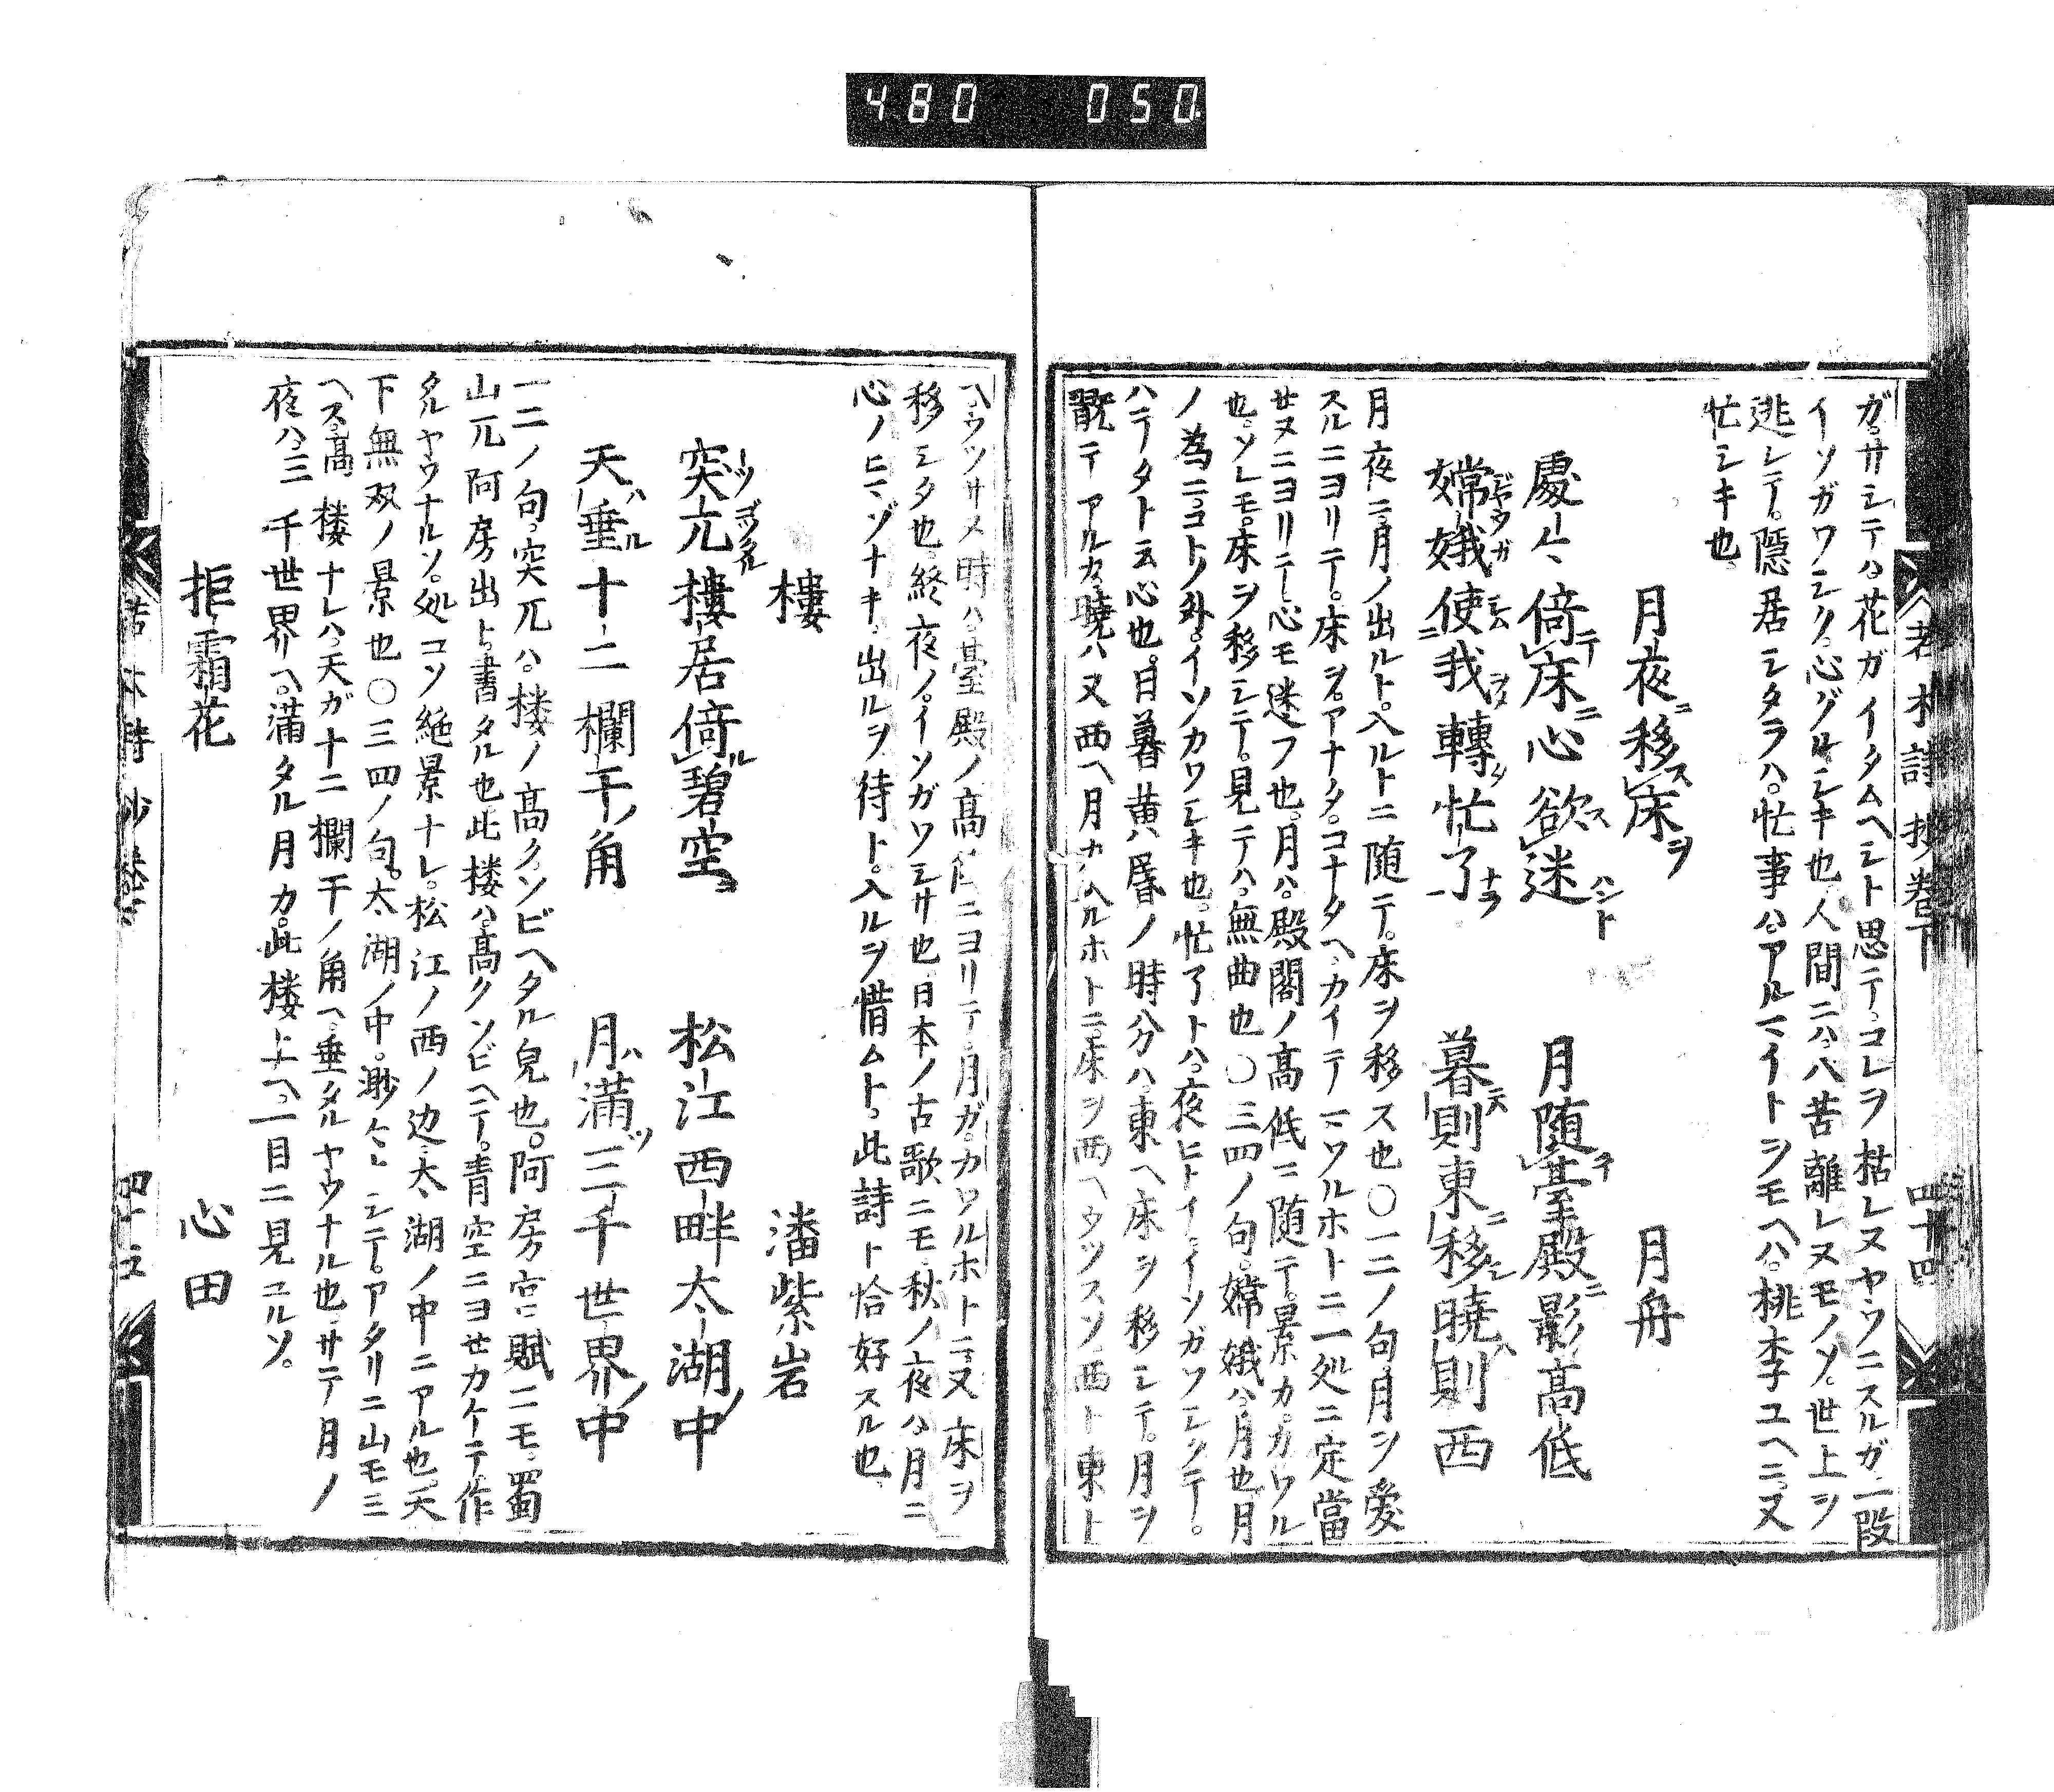 480 050
ガ。サシテハ。花ガイタムヘシト思テ。コレヲ枯レヌヤウニスルガ。一段
イソガワシク。心グルシキ也。人間ニハ。八苦離レヌモノソ。世上ヲ
逃レテ。隠居シタラハ。忙事ハ。アルマイトヲモヘハ。桃李ユヘニ。又
忙シキ也。
月夜移床 月舟
處々倚床心欲迷 月随臺殿影高低
嫦娥使我轉忙了 暮則東移暁則西
月夜ニ。月ノ出ルト。入ルトニ随テ。床ヲ移ス也〇一二ノ句。月ヲ愛
スルニヨリテ。床ヲ。アナタ。コナタヘ。カイテマワルホトニ一処ニ定當
サヌニヨリテ。心モ迷フ也。月ハ。殿閣ノ高低ニ随テ。景カ。カワル
也。ソレモ。床ヲ移シテ。見テハ。無曲也〇三四ノ句。嫦娥ハ。月也。月
ノ為ニ。コトノ外。イソカワシキ也。忙了トハ。夜ヒトイ。イソガワシクテ。
ハテタト云心也。日暮黄昏ノ時分ハ。東ヘ床ヲ移シテ。月ヲ
翫テアルカ。暁ハ又西ヘ月カヘルホトニ。床ヲ西ヘウツスソ。西ト東ト
ヘ。ウツサメ時ハ。臺殿ノ高低ニヨリテ。月ガ。カワルホトニ。又床ヲ
移シタ也。終夜ノ。イソガワシサ也。日本ノ古歌ニモ。秋ノ夜ハ。月ニ
心ノヒマゾナキ。出ルヲ待ト。入ルヲ惜ムト。此詩ト恰好スル也。
樓 潘紫岩
突兀樓居倚碧空 松江西畔太湖中
天垂十二欄干角 月滿三千世界中
一二ノ句。突兀ハ。楼ノ高クソビヘタル皃也。阿房宮賦ニモ。蜀
山兀阿房出ト。書タル也。此楼ハ。高クソビヘテ。青空ニヨセカケテ作
タルヤウナルソ。処コソ絶景ナレ。松江ノ西ノ边。太湖ノ中ニアル也。天
下無双ノ景也〇三四ノ句。太湖ノ中。渺々シテ。アタリニ山モミ
ヘス。高楼ナレハ。天ガ十二欄干ノ角ヘ。垂タルヤウナル也。サテ月ノ
夜ハ。三千世界ヘ。滿タル月カ。此楼上ヘ。一目ニ見ユルソ。
拒霜花 心田
四十四
四十五